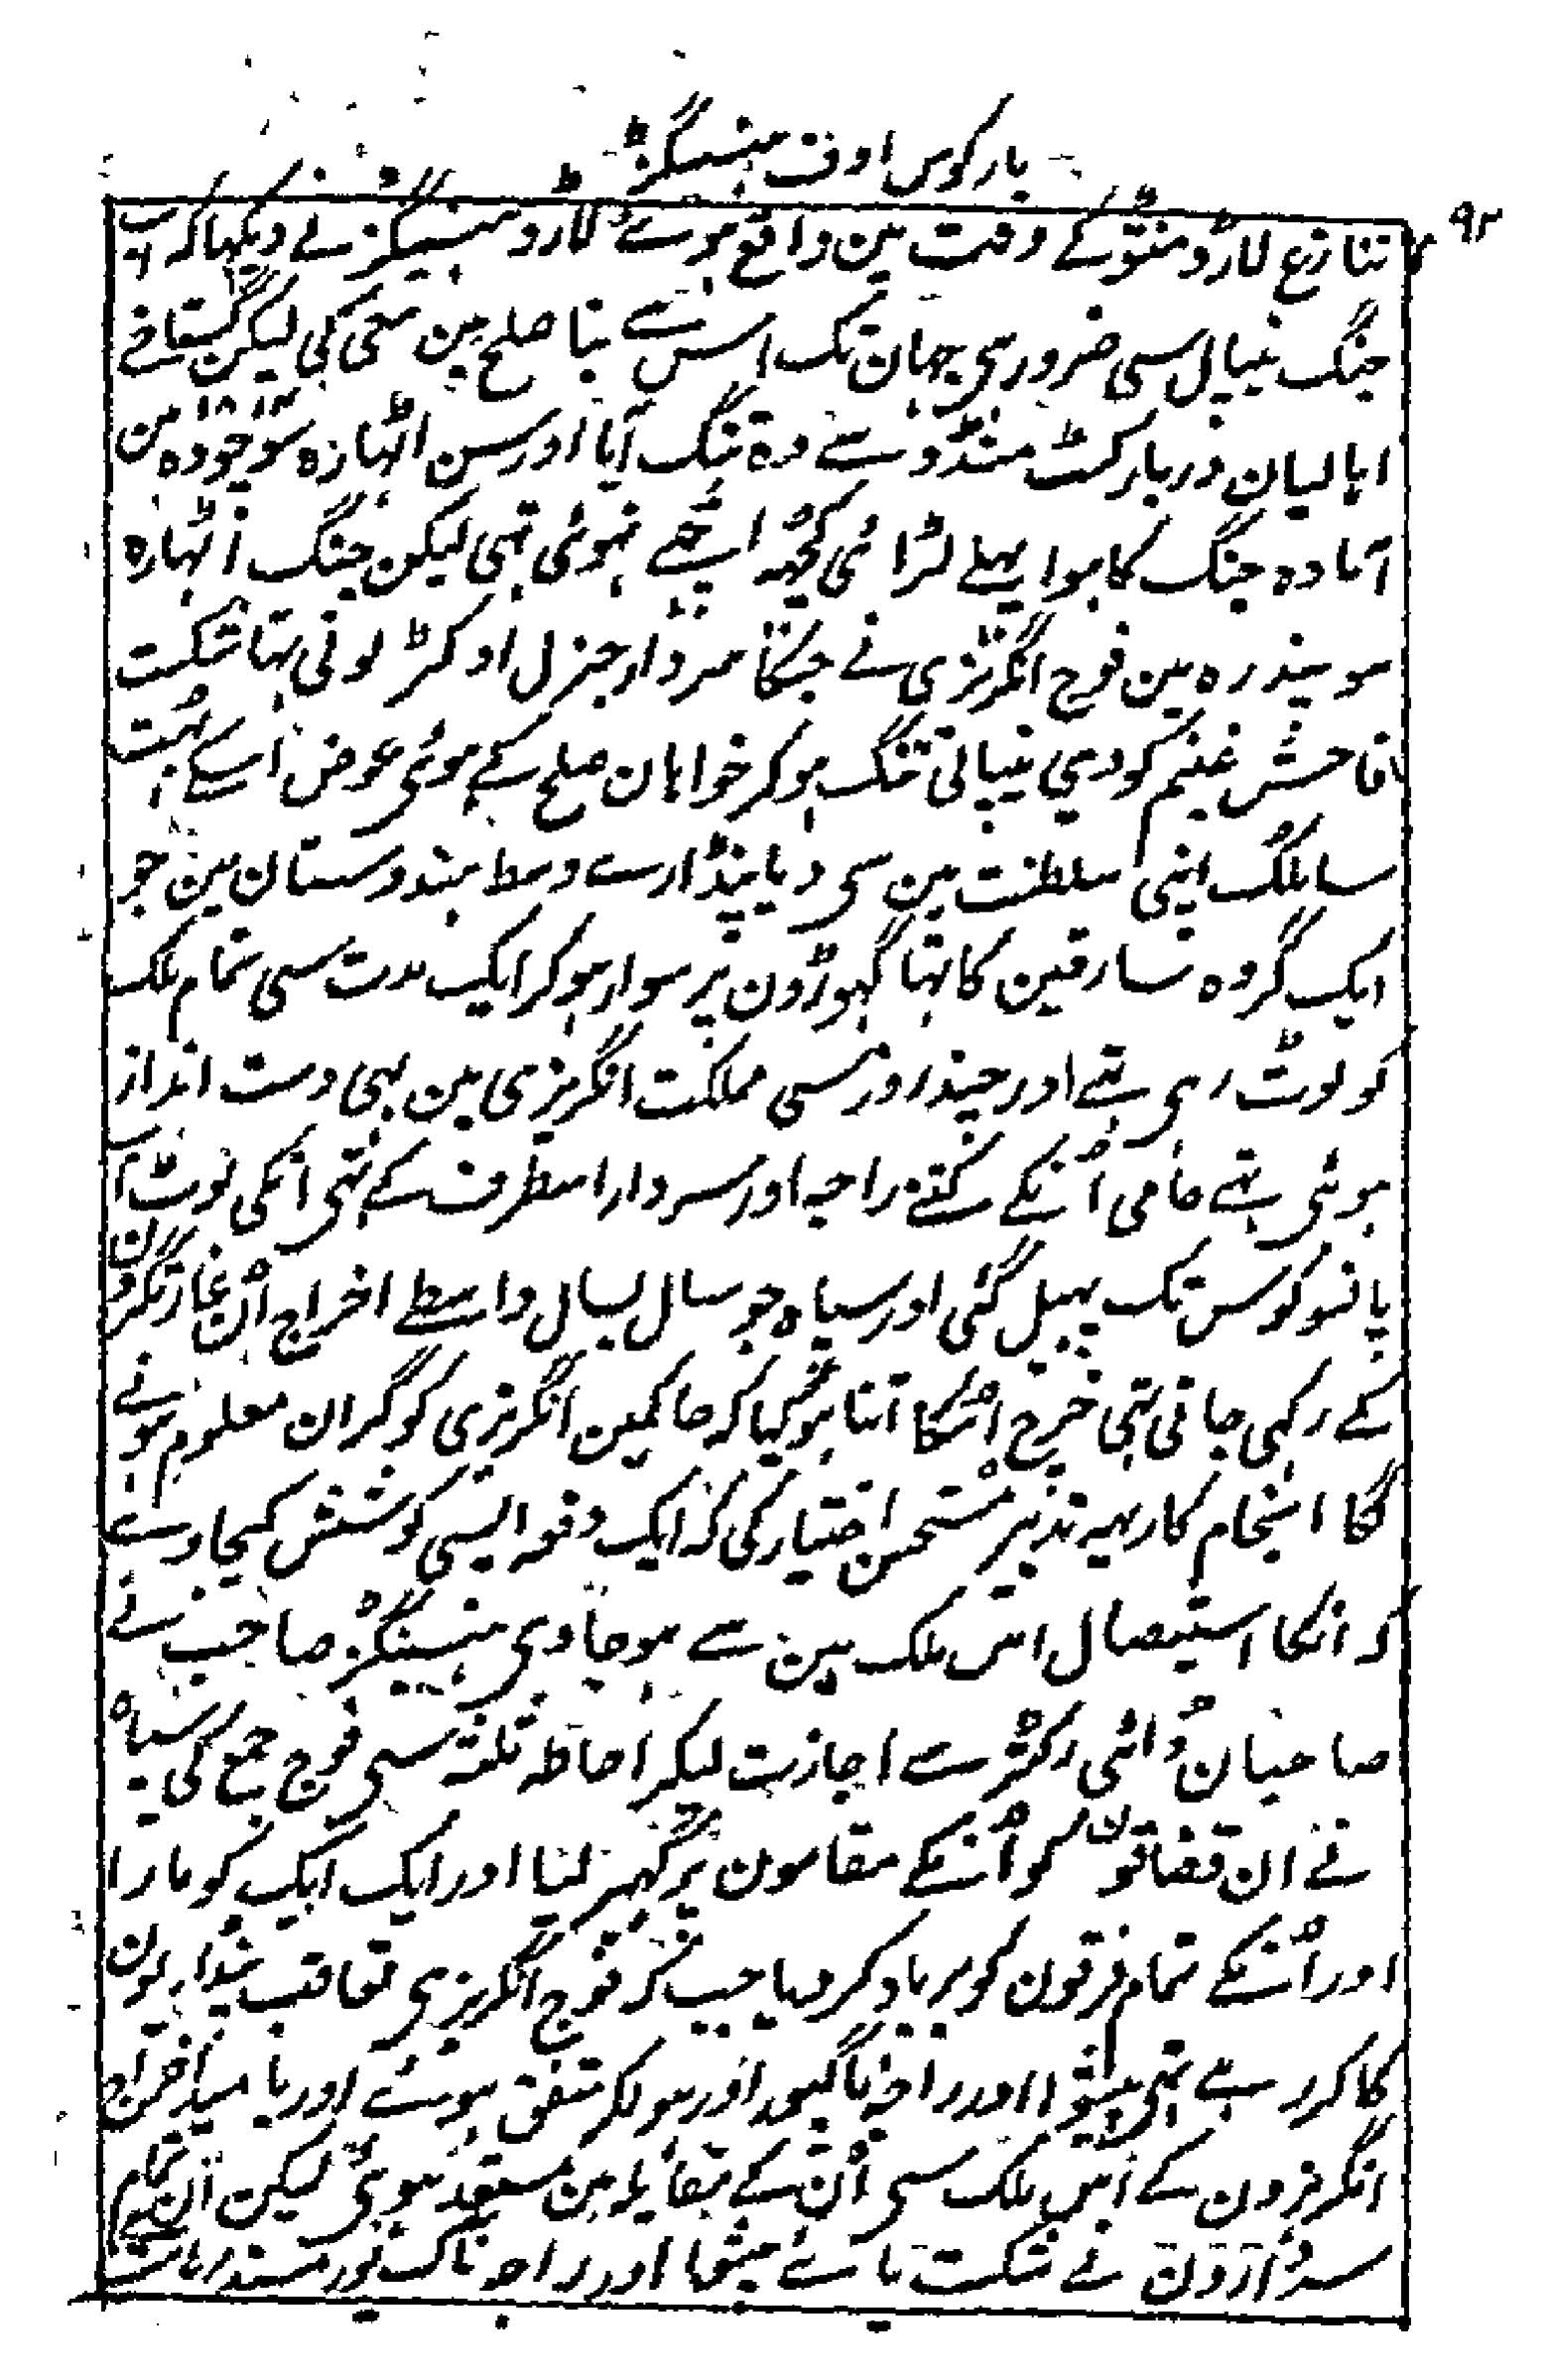 مارکوس اوف ہنسٹنگز
۹۲
تنازع لارڈ منٹو کے وقت مین واقع ہوے لارڈ ہسٹینگز نے دیکہا کہ اب
جنگ نیپال سی ضرور ہی جہان تک اس سے بنا صلح مین سعی کی لیکن گستاخے
اہالیان دربار کٹ منڈو سے وہ تنگ آیا اور سن اٹہارہ سو چودہ ۱۸۱۴ مین
آمادہ جنگ کا ہوا پہلے لڑائی کچہہ اچہے نہوئی تہی لیکن جنگ اٹہارہ
سو پندرہ مین فوج انگریزی نے جسکا سردار جنرل اوکٹر لونی تہا شکست
فاحش غنیم کو دی نیپالی تنگ ہو کر خواہان صلح کے ہوئی عوض اسکے بہت
سا ملک اپنی سلطنت مین سی دیا پنڈارے وسط ہندوستان مین جو
ایک گروہ سارقین کا تہا گہوڑون پر سوار ہو کر ایک مدت سی تمام ملک
کو لوٹ رہی تہے اور چند روز سی مملکت انگریزی مین بہی دست انداز
ہوئی تہے حامی اُنکے کتنے راجہ اور سردار اسطرف کے تہی انکی لوٹ اب
پانسو کوس تک پہیل گئی اور سپاہ جو سال بسال واسطے اخراج اُن غارتگرون
کے رکہی جاتی تہی خرچ اُسکا اتنا ہو گیا کہ حاکمین انگریزی کو گران معلوم ہونے
لگا انجام کار یہہ تدبیر مستحسن اختیار کی کہ ایک دفعہ ایسی کوشش کیجاوے
کہ انکا استیصال اس ملک مین سے ہو جاوی ہسٹینگز صاحب نے
صاحبان ڈائی رکٹر سے اجازت لیکر احاطہ ثلثہ سی فوج جمع کی سپاہ
نے ان قضاقون کو اُنکے مقامون پر گہیر لیا اور ایک ایک کو مارا
اور اُنکے تمام فرقون کو برباد کر دیا جب کہ فوج انگریزی تعاقب پنڈاریون
کا کر رہے تہی پیشوا اور راجہ ناگپور اور ہولکر متفق ہوئے اور بامید اخراج
انگریزون کے اس ملک سی اُن کے مقابلہ مین مستعد ہوئی لیکن ان تمام
سردارون نے شکست پائے پیشوا اور راجہ ناگ پور مسند ریاست